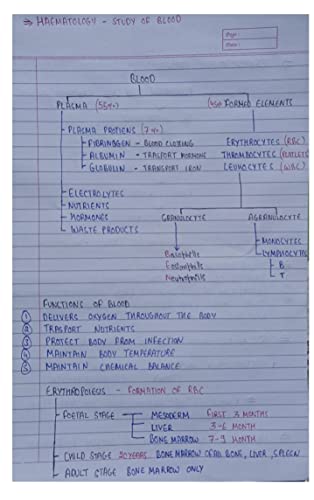 ⇒ HAEMATOLOGY - STUDY OF BLOOD
Page :
Date :
BLOOD
PLASMA (55%) FORMED ELEMENTS
PLASMA PROTIENS (7%)
FIBRINOGEN - BLOOD CLOTING ERYTHROCYTES (RBC)
ALBUMIN - TRASPORT HORMONE THROMBOCYTES (PLATLETS)
GLOBULIN - TRANSPORT IRON LEUKOCYTES (WBC)
ELECTROLYTES
NUTRIENTS
HORMONES GRANULOCYTE AGRANULOCYTE
WASTE PRODUCTS
MONOCYTES
Basophils LYMPHOCYTES
Eosinophils B
Neutrophils T
FUNCTIONS OF BLOOD
① DELIVERS OXYGEN THROUGHOUT THE BODY
② TRASPORT NUTRIENTS
③ PROTECT BODY FROM INFECTION
④ MAINTAIN BODY TEMPERATURE
⑤ MAINTAIN CHEMICAL BALANCE
ERYTHROPOIESIS - FORMATION OF RBC
FOETAL STAGE MESODERM FIRST 3 MONTHS
LIVER 3-6 MONTH
BONE MARROW 7-9 MONTH
CHILD STAGE 20YEARS BONE MARROW BONE, LIVER, SPLEEN
ADULT STAGE BONE MARROW ONLY